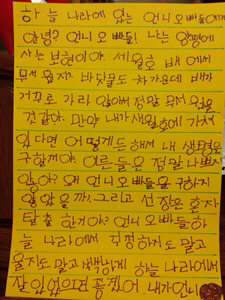 하늘나라에 있는 언니오빠들에게
안녕? 언니오빠들! 나는 안양에
사는 보현이야. 세월호 배에서
무서웠지? 바닷물도 차가운데 배가
거꾸로 가라앉아서 정말 무서웠을
것같아. 만약 내가 세월호에 가서
있다면 어떻게든 해서 내 생명을
구할꺼야 어른들은 정말 나쁘지
않아? 왜 언니오빠들을 구하지
않았을까? 그리고 선장은 혼자
탈출 한거야? 언니오빠들 하
늘나라에서 걱정하지도 말고
울지도 말고 행복하게 하늘나라에서
잘 있었으면 좋겠어 내가 언니